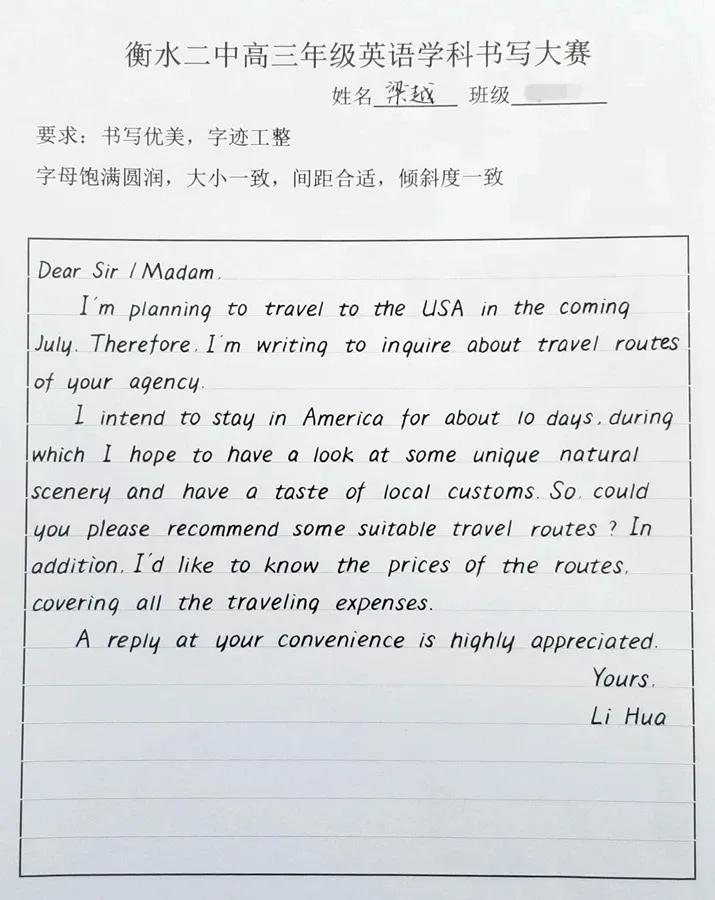 衡水二中高三年级英语学科书写大赛
姓名 梁越 班级
要求：书写优美，字迹工整
字母饱满圆润，大小一致，间距合适，倾斜度一致
Dear Sir / Madam,
I'm planning to travel to the USA in the coming
July. Therefore, I'm writing to inquire about travel routes
of your agency.
I intend to stay in America for about 10 days, during
which I hope to have a look at some unique natural
scenery and have a taste of local customs. So, could
you please recommend some suitable travel routes ? In
addition, I'd like to know the prices of the routes,
covering all the traveling expenses.
A reply at your convenience is highly appreciated.
Yours,
Li Hua